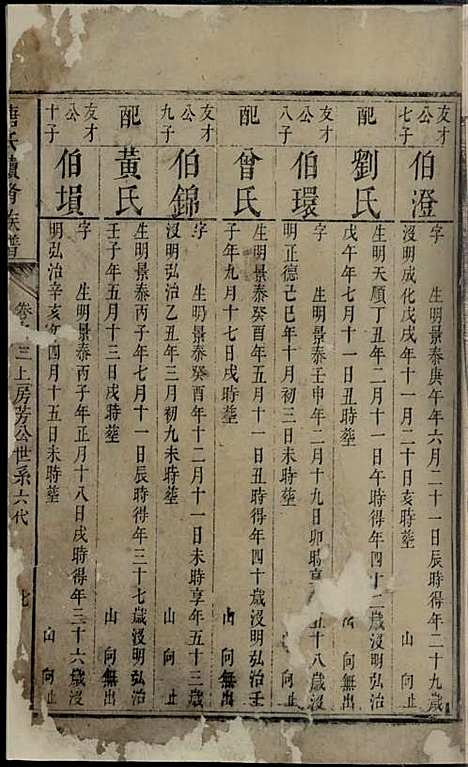 友才
公
七子
伯澄
字 生明景泰庚午年六月二十一日辰時得年二十九歲
沒明成化戊戌年十一月二十日亥時塟 山 向 止
配
劉氏
生明天順丁丑年二月十一日午時得年四十二歲沒明弘治
戊午年七月十一日丑時塟 山 向無出
友才
公
八子
伯環
字 生明景泰壬申年二月十九日卯時享 五十八歲沒
明正德己巳年十月初三日戌時塟 山 向 止
配
曾氏
生明景泰癸酉年五月十一日丑時得年四十歲沒明弘治壬
子年九月十七日戌時塟 山 向無出
友才
公
九子
伯錦
字 生明景泰癸酉年十二月十一日未時享年五十三歲
沒明弘治乙丑年三月初九未時塟 山 向 止
配
黃氏
生明景泰丙子年七月十一日辰時得年三十七歲沒明弘治
壬子年五月十三日戌時塟 山 向無出
友才
公
十子
伯塤
字 生明景泰丙子年正月十八日戌時得年三十六歲沒
明弘治辛亥年四月十五日未時塟 山 向止
氏續脩族譜 卷 三上房芳公世系六代 七